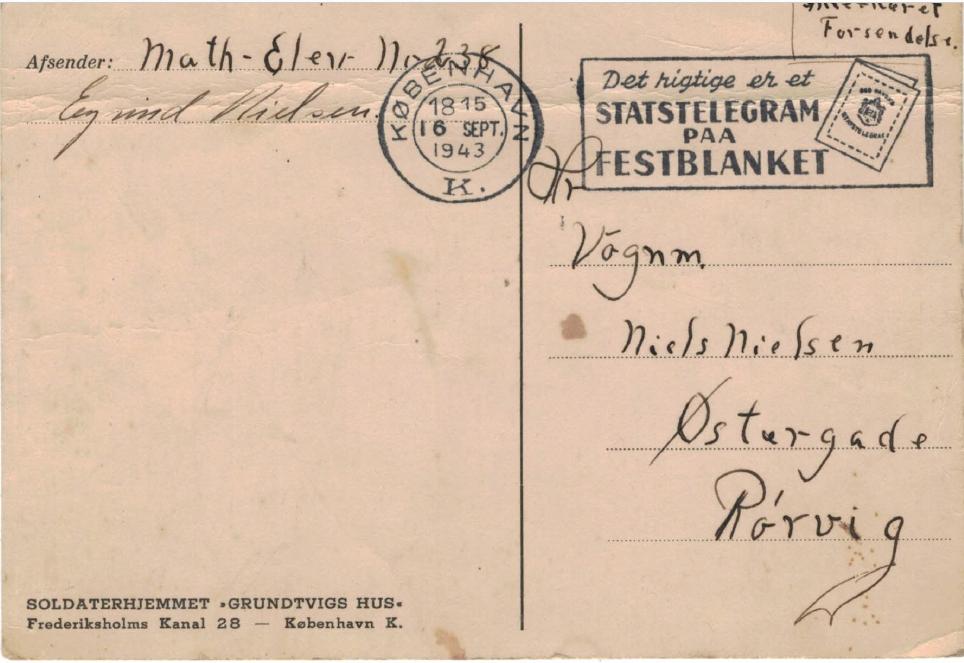 Interneret
Forsendelse.
Afsender: Math-Elev No 238
Egvind Nielsen.
KØBENHAVN
18 15
16 SEPT.
1943
K.
Det rigtige er et
STATSTELEGRAM
PAA
FESTBLANKET
Hr
Vognm.
Niels Nielsen
Østergade
Rørvig
SOLDATERHJEMMET »GRUNDTVIGS HUS«
Frederiksholms Kanal 28 — København K.